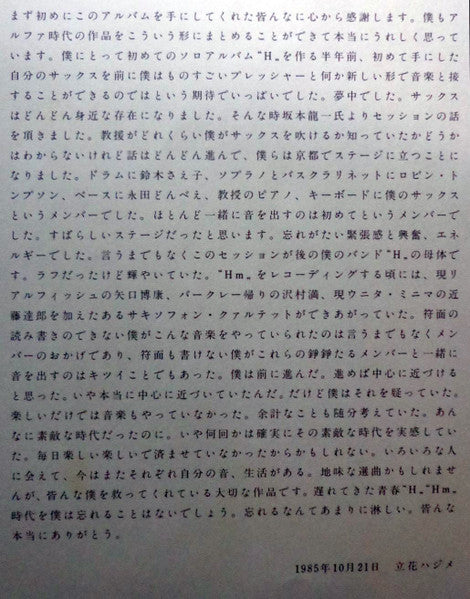 まず初めにこのアルバムを手にしてくれた皆んなに心から感謝します。僕もア
ルファ時代の作品をこういう形にまとめることができて本当にうれしく思って
います。僕にとって初めてのソロアルバム“H„を作る半年前、初めて手にした
自分のサックスを前に僕はものすごいプレッシャーと何か新しい形で音楽と接
することができるのではという期待でいっぱいでした。夢中でした。サックス
はどんどん身近な存在になりました。そんな時坂本龍一氏よりセッションの話
を頂きました。教授がどれくらい僕がサックスを吹けるか知っていたかどうか
はわからないけれど話はどんどん進んで、僕らは京都でステージに立つことに
なりました。ドラムに鈴木さえ子、ソプラノとバスクラリネットにロビン・ト
ンプソン、ベースに永田どんべえ、教授のピアノ、キーボードに僕のサックス
というメンバーでした。ほとんど一緒に音を出すのは初めてというメンバーで
した。すばらしいステージだったと思います。忘れがたい緊張感と興奮、エネ
ルギーでした。言うまでもなくこのセッションが後の僕のバンド“H„の母体で
す。ラフだったけど輝やいていた。“Hm„をレコーディングする頃には、現リ
アルフィッシュの矢口博康、バークレー帰りの沢村満、現ウニタ・ミニマの近
藤達郎を加えたあるサキソフォン・クァルテットができあがっていた。符面の
読み書きのできない僕がこんな音楽をやっていられたのは言うまでもなくメン
バーのおかげであり、符面も書けない僕がこれらの錚錚たるメンバーと一緒に
音を出すのはキツイことでもあった。僕は前に進んだ。進めば中心に近づける
と思った。いや本当に中心に近づいていたんだ。だけど僕はそれを疑っていた。
楽しいだけでは音楽もやっていなかった。余計なことも随分考えていた。あん
なに素敵な時代だったのに。いや何回かは確実にその素敵な時代を実感してい
た。毎日楽しい楽しいで済ませていなかったからかもしれない。いろいろな人
に会えて、今はまたそれぞれ自分の音、生活がある。地味な選曲かもしれませ
んが、皆んな僕を救ってくれている大切な作品です。遅れてきた青春“H„“Hm„
時代を僕は忘れることはないでしょう。忘れるなんてあまりに淋しい。皆んな
本当にありがとう。
1985年10月21日 立花ハジメ